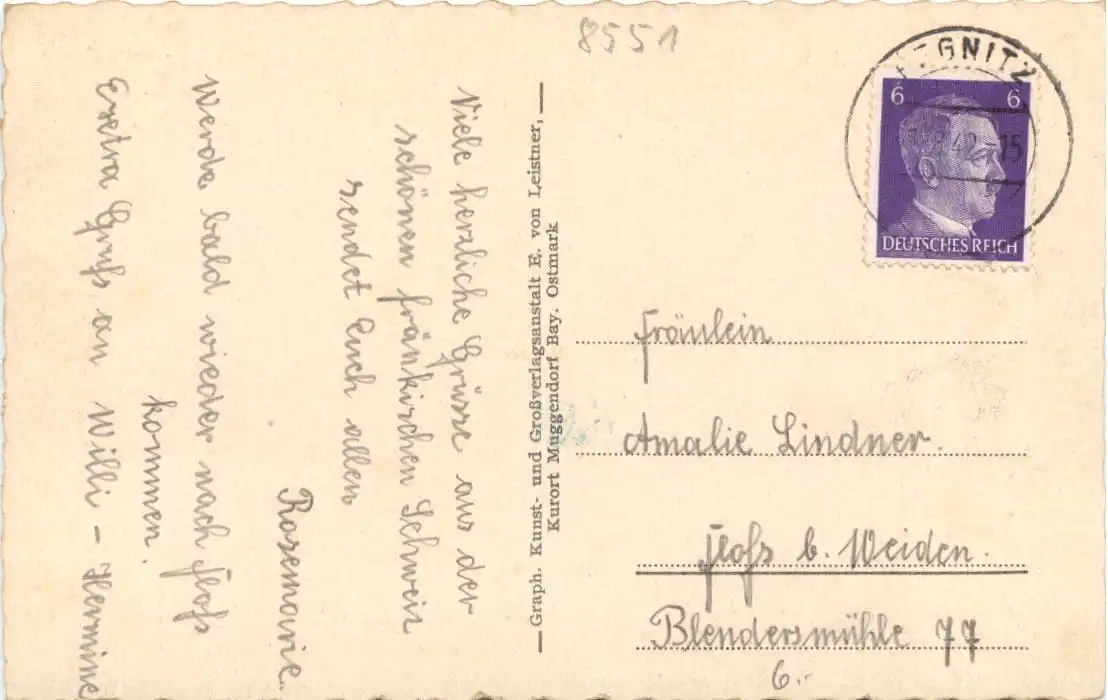 Viele herzliche Grüsse aus der
schönen fränkischen Schweiz
sendet Euch allen
Rosemarie.
Werde bald wieder nach Floß
kommen.
Extra Gruß an Willi – Hermine
— Graph. Kunst- und Großverlagsanstalt E. von Leistner, —
Kurort Muggendorf Bay. Ostmark
8551
EGNITZ
6 6
42 15
DEUTSCHES REICH
Fräulein
Amalie Lindner.
Floß b. Weiden.
Blendersmühle 77
6.-